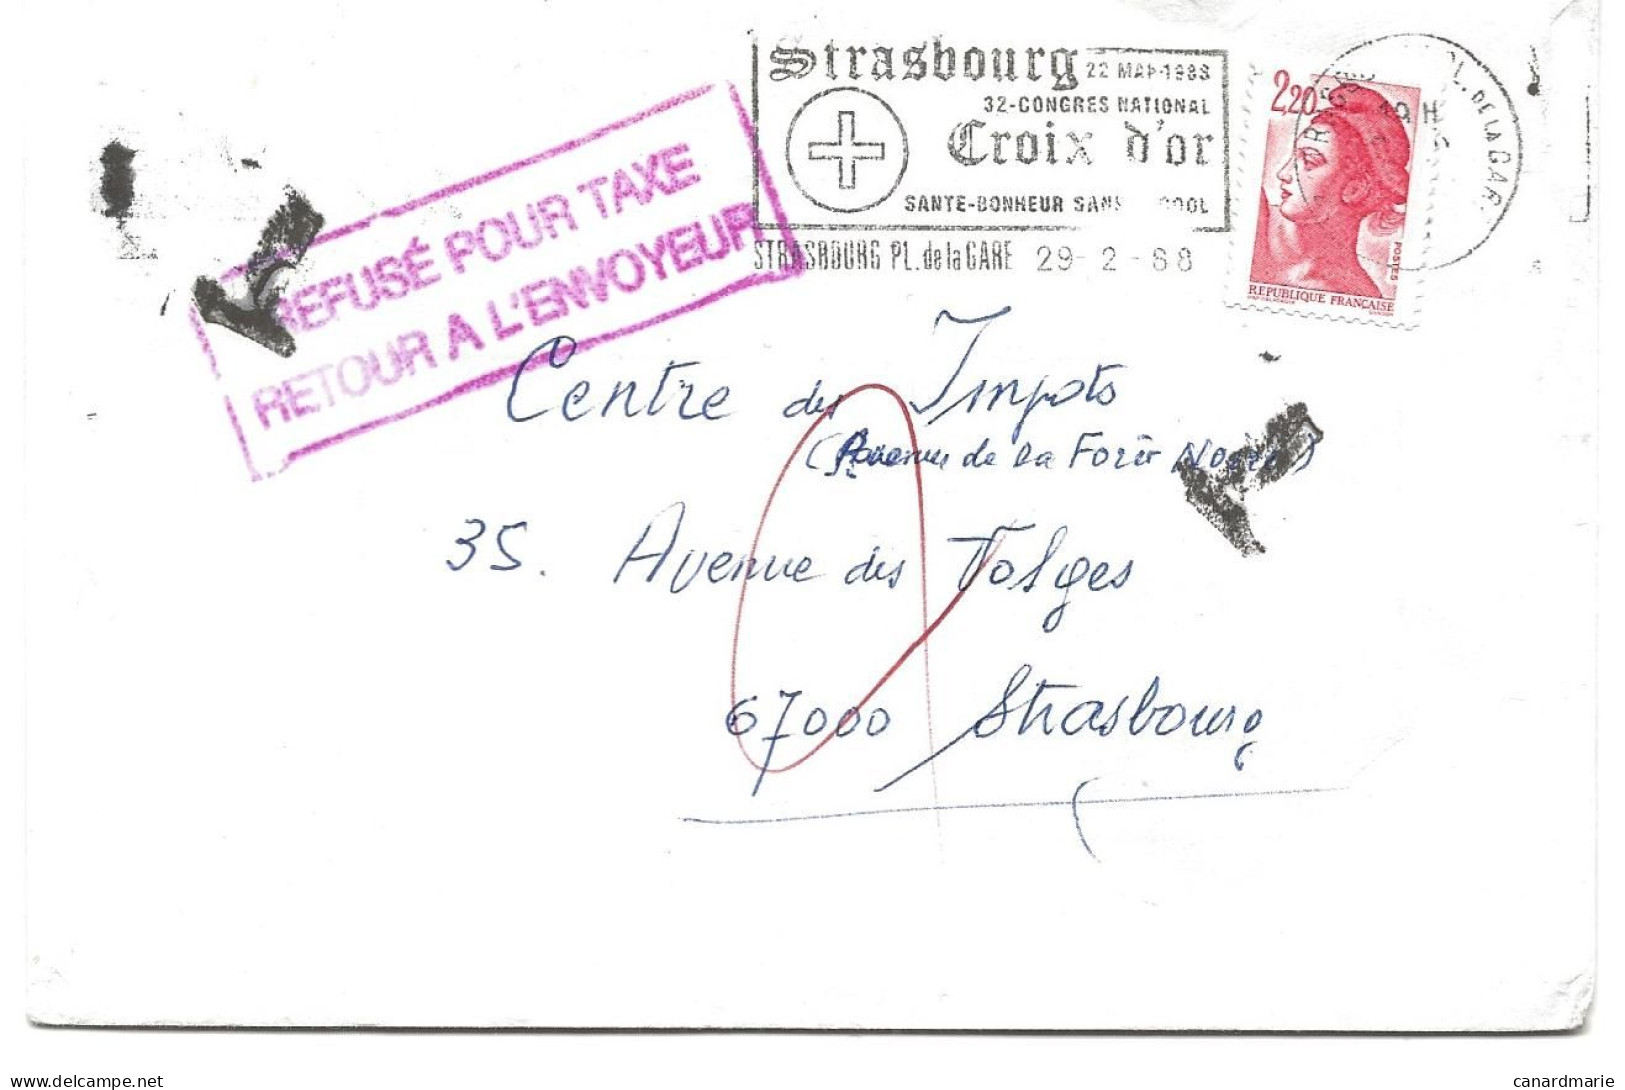 Strasbourg 22 MAR 1988
32-CONGRES NATIONAL
Croix d'or
SANTE-BONHEUR SANS OOL
STRASBOURG PL. de la GARE 29-2-88
19 H
PL. DE LA GARE
2,20
POSTES
REPUBLIQUE FRANÇAISE
REFUSÉ POUR TAXE
RETOUR A L'ENVOYEUR
T
Centre des Impots
(Avenue de la Forêt Noire)
T
35. Avenue des Vosges
67000 Strasbourg
canardmarie